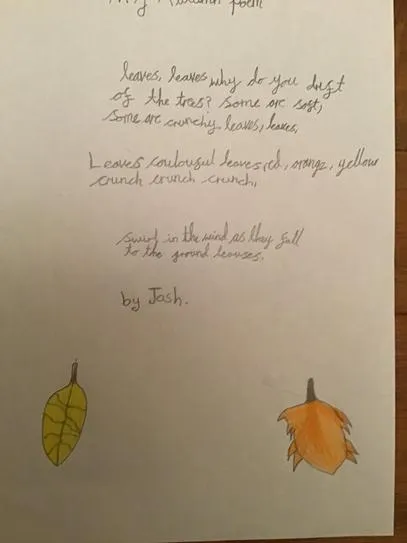 My Autumn poem
leaves, leaves why do you drift
of the trees? Some are soft,
some are crunchy leaves, leaves,
Leaves coulourful leaves, red, orange, yellow
crunch crunch crunch,
swirl in the wind as they fall
to the ground leaves,
by Josh.